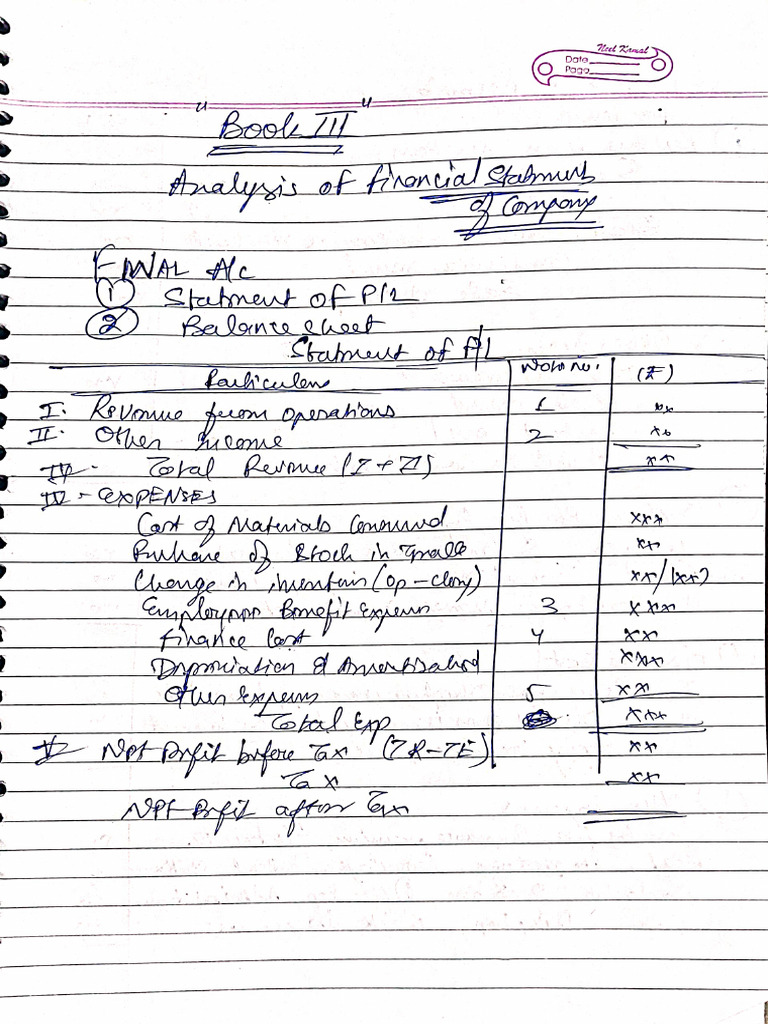 Neel Kamal
Date
Page
Book III
Analysis of financial Statments
of Company
FINAL A/c
① Statment of P/L
② Balance sheet
Statment of P/L
Particulars Note no. (₹)
I. Revenue from operations 1 xx
II. Other income 2 xx
IV. Total Revenue (I + II) xx
IV. EXPENSES
Cost of Materials Consumed xxx
Purchase of Stock in Trade xx
Change in inventories (Op - Closing) xx/(xx)
Employees Benefit Expenses 3 xxx
Finance Cost 4 xx
Depreciation & Amortisation xxx
Other Expenses 5 xx
Total Exp xxx
V Net Profit before Tax (TR-TE) xx
Tax xx
Net Profit after Tax